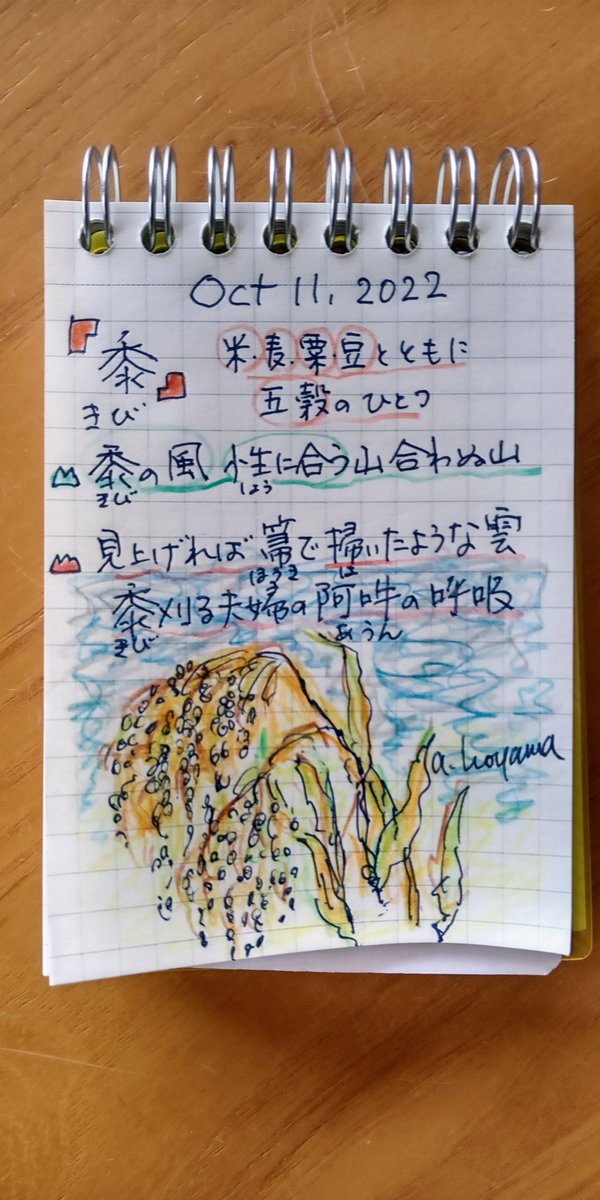 Oct 11, 2022
『黍』
きび
米・麦・粟・豆とともに
五穀のひとつ
黍の風 性に合う山合わぬ山
きび しょう
見上げれば箒で掃いたような雲
ほうき は
黍刈る夫婦の阿吽の呼吸
きび あうん
a.koyama